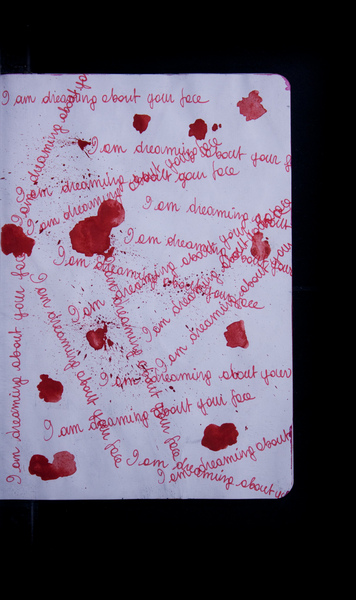 I am dreaming about your face
I am dreaming about yo
I am dreaming about your f
I am dreaming about your face
I am dreaming about your face
I am dreaming about
I am dreaming about your face
I am dreaming about your face
I am dreaming about your face
I am dreaming about your face
I am dreaming about your face
I am dreaming about your face
I am dreaming about your face
I am dreaming about your face
I am dreaming about your
I am dreaming about your face
I am dreaming about
I am dreaming about